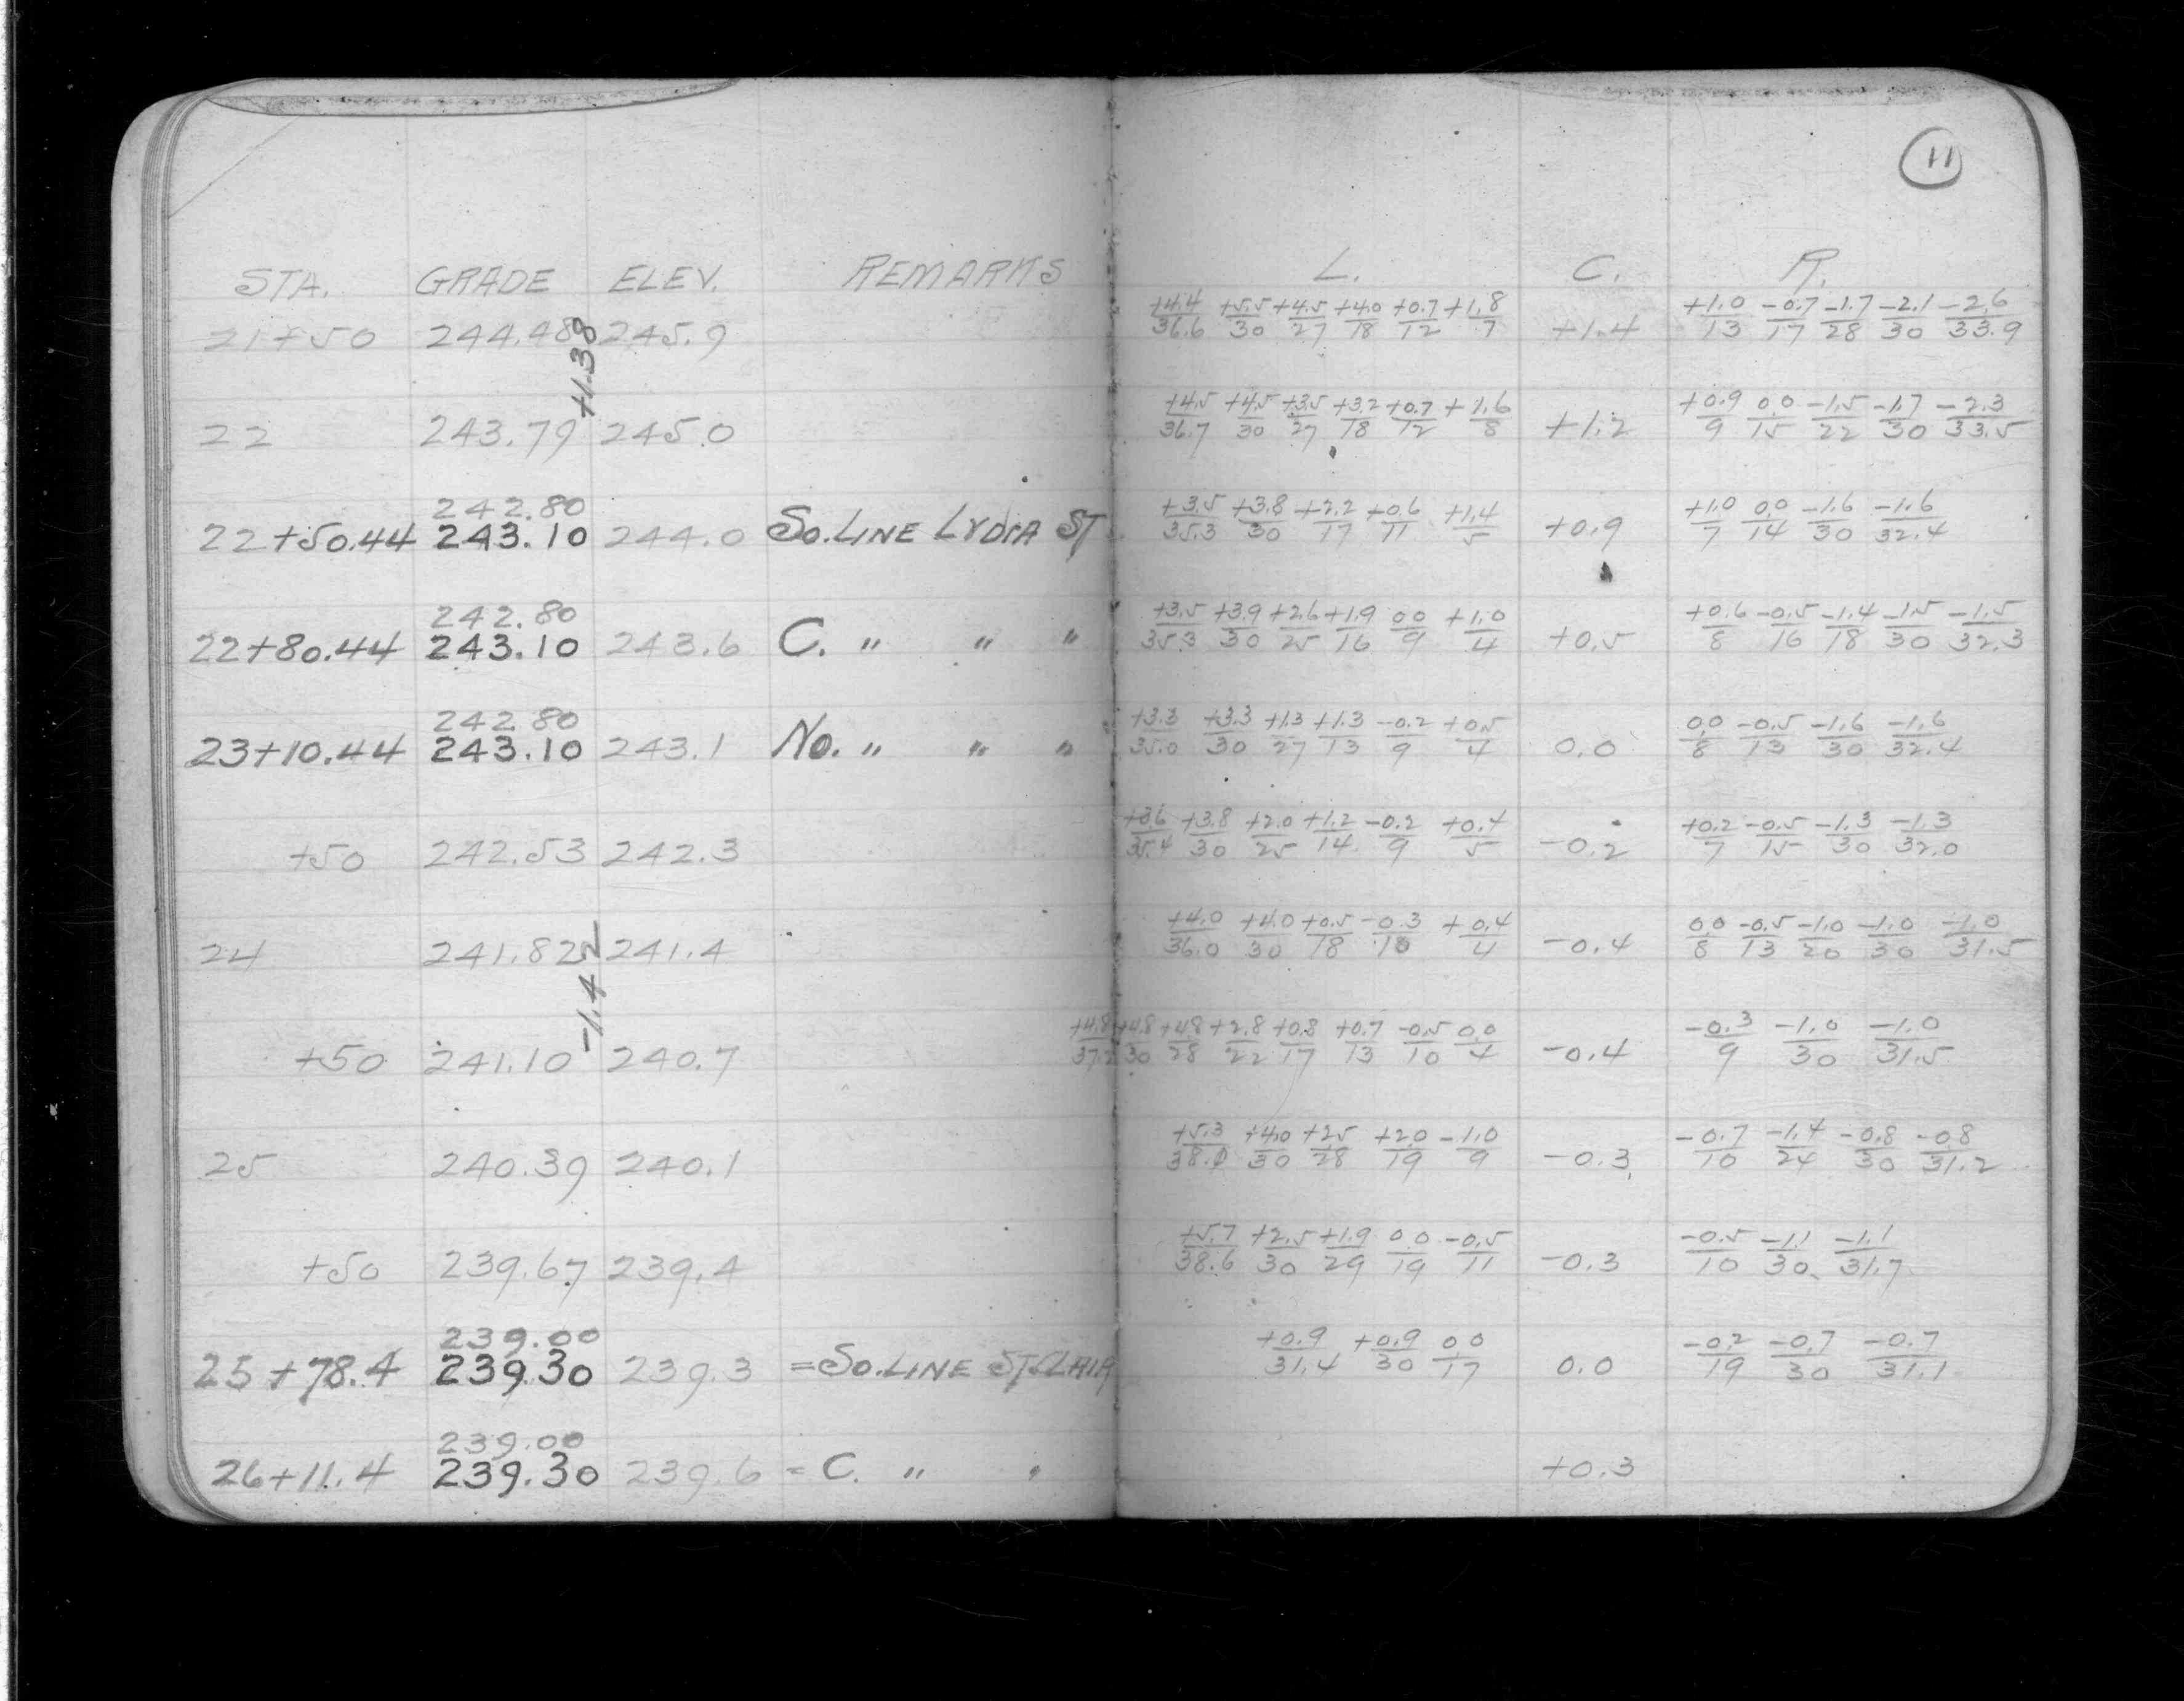 11
STA. GRADE ELEV. REMARKS L. C. R.
21+50 244.48 245.9 +4.4/36.6 +5.5/30 +4.5/27 +4.0/18 +0.7/12 +1.8/7 +1.4 +1.0/13 -0.7/17 -1.7/28 -2.1/30 -2.6/33.9
+1.38
22 243.79 245.0 +4.5/36.7 +4.5/30 +3.5/27 +3.2/18 +0.7/12 +1.6/8 +1.2 +0.9/9 0.0/15 -1.5/22 -1.7/30 -2.3/33.5
242.80
22+50.44 243.10 244.0 So. LINE LYDIA ST +3.5/35.3 +3.8/30 +2.2/17 +0.6/11 +1.4/5 +0.9 +1.0/7 0.0/14 -1.6/30 -1.6/32.4
242.80
22+80.44 243.10 243.6 C. " " " +3.5/35.3 +3.9/30 +2.6/25 +1.9/16 0.0/9 +1.0/4 +0.5 +0.6/8 -0.5/16 -1.4/18 -1.5/30 -1.5/32.3
242.80
23+10.44 243.10 243.1 No. " " " +3.3/35.0 +3.3/30 +1.3/27 +1.3/13 -0.2/9 +0.5/4 0.0 0.0/8 -0.5/13 -1.6/30 -1.6/32.4
+50 242.53 242.3 +3.6/35.4 +3.8/30 +2.0/25 +1.2/14 -0.2/9 +0.4/5 -0.2 +0.2/7 -0.5/15 -1.3/30 -1.3/32.0
24 241.82 241.4 +4.0/36.0 +4.0/30 +0.5/18 -0.3/10 +0.4/4 -0.4 0.0/8 -0.5/13 -1.0/20 -1.0/30 -1.0/31.5
-1.42
+50 241.10 240.7 +4.8/37.2 +4.8/30 +4.8/28 +2.8/22 +0.8/17 +0.7/13 -0.5/10 0.0/4 -0.4 -0.3/9 -1.0/30 -1.0/31.5
25 240.39 240.1 +5.3/38.0 +4.0/30 +2.5/28 +2.0/19 -1.0/9 -0.3 -0.7/10 -1.4/24 -0.8/30 -0.8/31.2
+50 239.67 239.4 +5.7/38.6 +2.5/30 +1.9/29 0.0/19 -0.5/11 -0.3 -0.5/10 -1.1/30 -1.1/31.7
239.00
25+78.4 239.30 239.3 =So. LINE ST. CLAIR +0.9/31.4 +0.9/30 0.0/17 0.0 -0.2/19 -0.7/30 -0.7/31.1
239.00
26+11.4 239.30 239.6 = C. " " +0.3